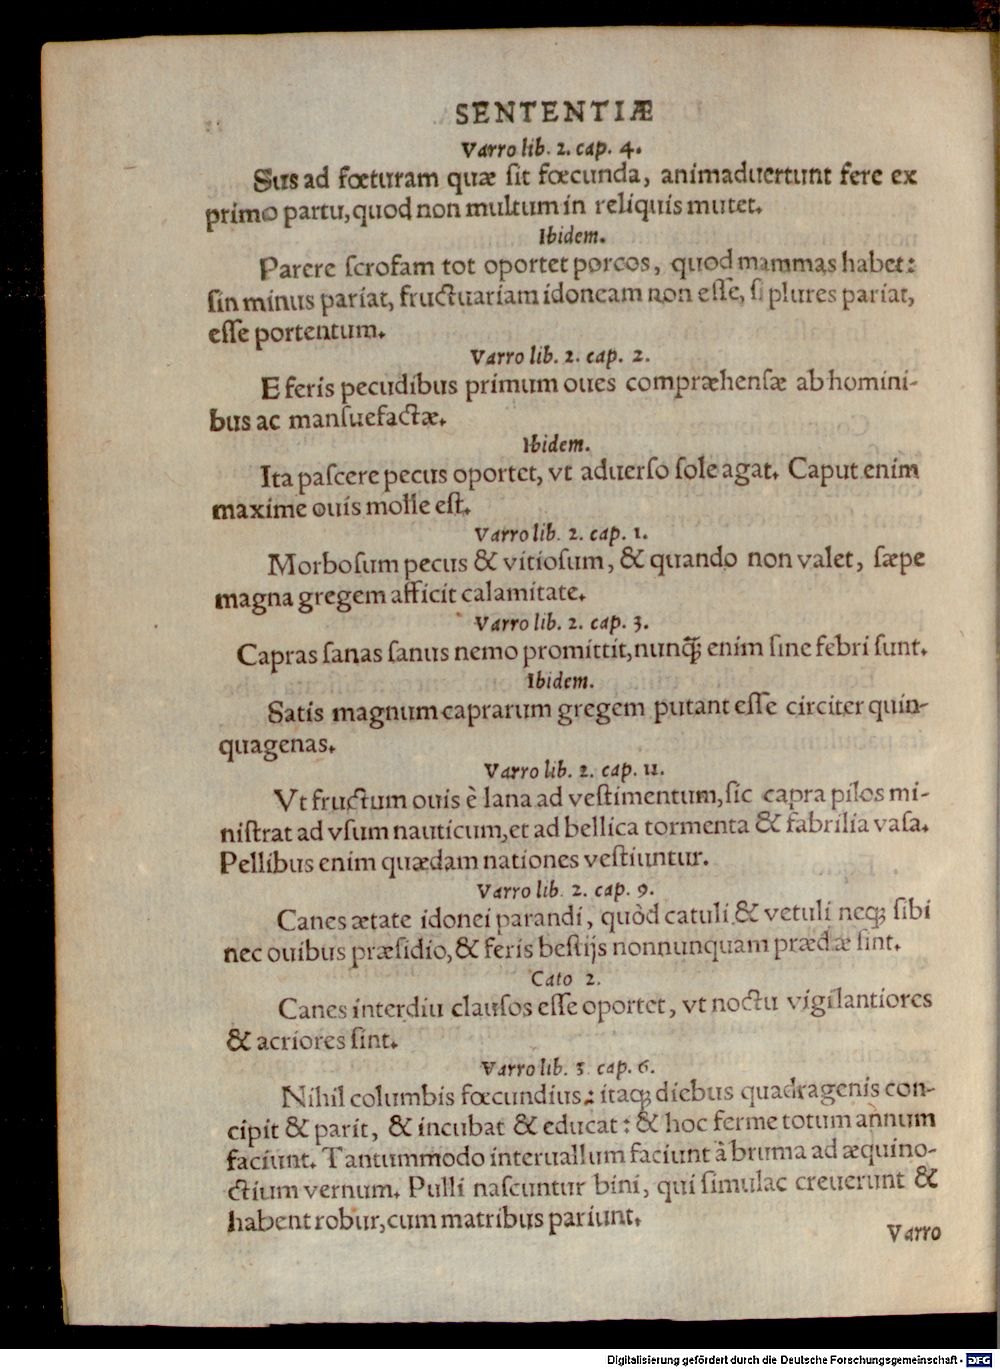 SENTENTIÆ
Varro lib. 2. cap. 4.
Sus ad fœturam quæ ſit fœcunda, animaduertunt fere ex
primo partu, quod non multum in reliquis mutet.
Ibidem.
Parere ſcrofam tot oportet porcos, quod mammas habet:
ſin minus pariat, fructuariam idoneam non eſſe, ſi plures pariat,
eſſe portentum.
Varro lib. 2. cap. 2.
E feris pecudibus primum oues compræhenſæ ab homini-
bus ac manſuefactæ.
Ibidem.
Ita paſcere pecus oportet, vt aduerſo ſole agat. Caput enim
maxime ouis molle eſt.
Varro lib. 2. cap. 1.
Morboſum pecus & vitioſum, & quando non valet, ſæpe
magna gregem afficit calamitate.
Varro lib. 2. cap. 3.
Capras ſanas ſanus nemo promittit, nunq̃ꝫ enim ſine febri ſunt.
Ibidem.
Satis magnum caprarum gregem putant eſſe circiter quin-
quagenas.
Varro lib. 2. cap. 11.
Vt fructum ouis è lana ad veſtimentum, ſic capra pilos mi-
niſtrat ad vſum nauticum, et ad bellica tormenta & fabrilia vaſa.
Pellibus enim quædam nationes veſtiuntur.
Varro lib. 2. cap. 9.
Canes ætate idonei parandi, quòd catuli & vetuli neqꝫ ſibi
nec ouibus præſidio, & feris beſtijs nonnunquam prædæ ſint.
Cato 2.
Canes interdiu clauſos eſſe oportet, vt noctu vigilantiores
& acriores ſint.
Varro lib. 3 cap. 6.
Nihil columbis fœcundius: itaqꝫ diebus quadragenis con-
cipit & parit, & incubat & educat: & hoc ferme totum annum
faciunt. Tantummodo interuallum faciunt à bruma ad æquino-
ctium vernum. Pulli naſcuntur bini, qui ſimulac creuerunt &
habent robur, cum matribus pariunt.
Varro
Digitalisierung gefördert durch die Deutsche Forschungsgemeinschaft - DFG